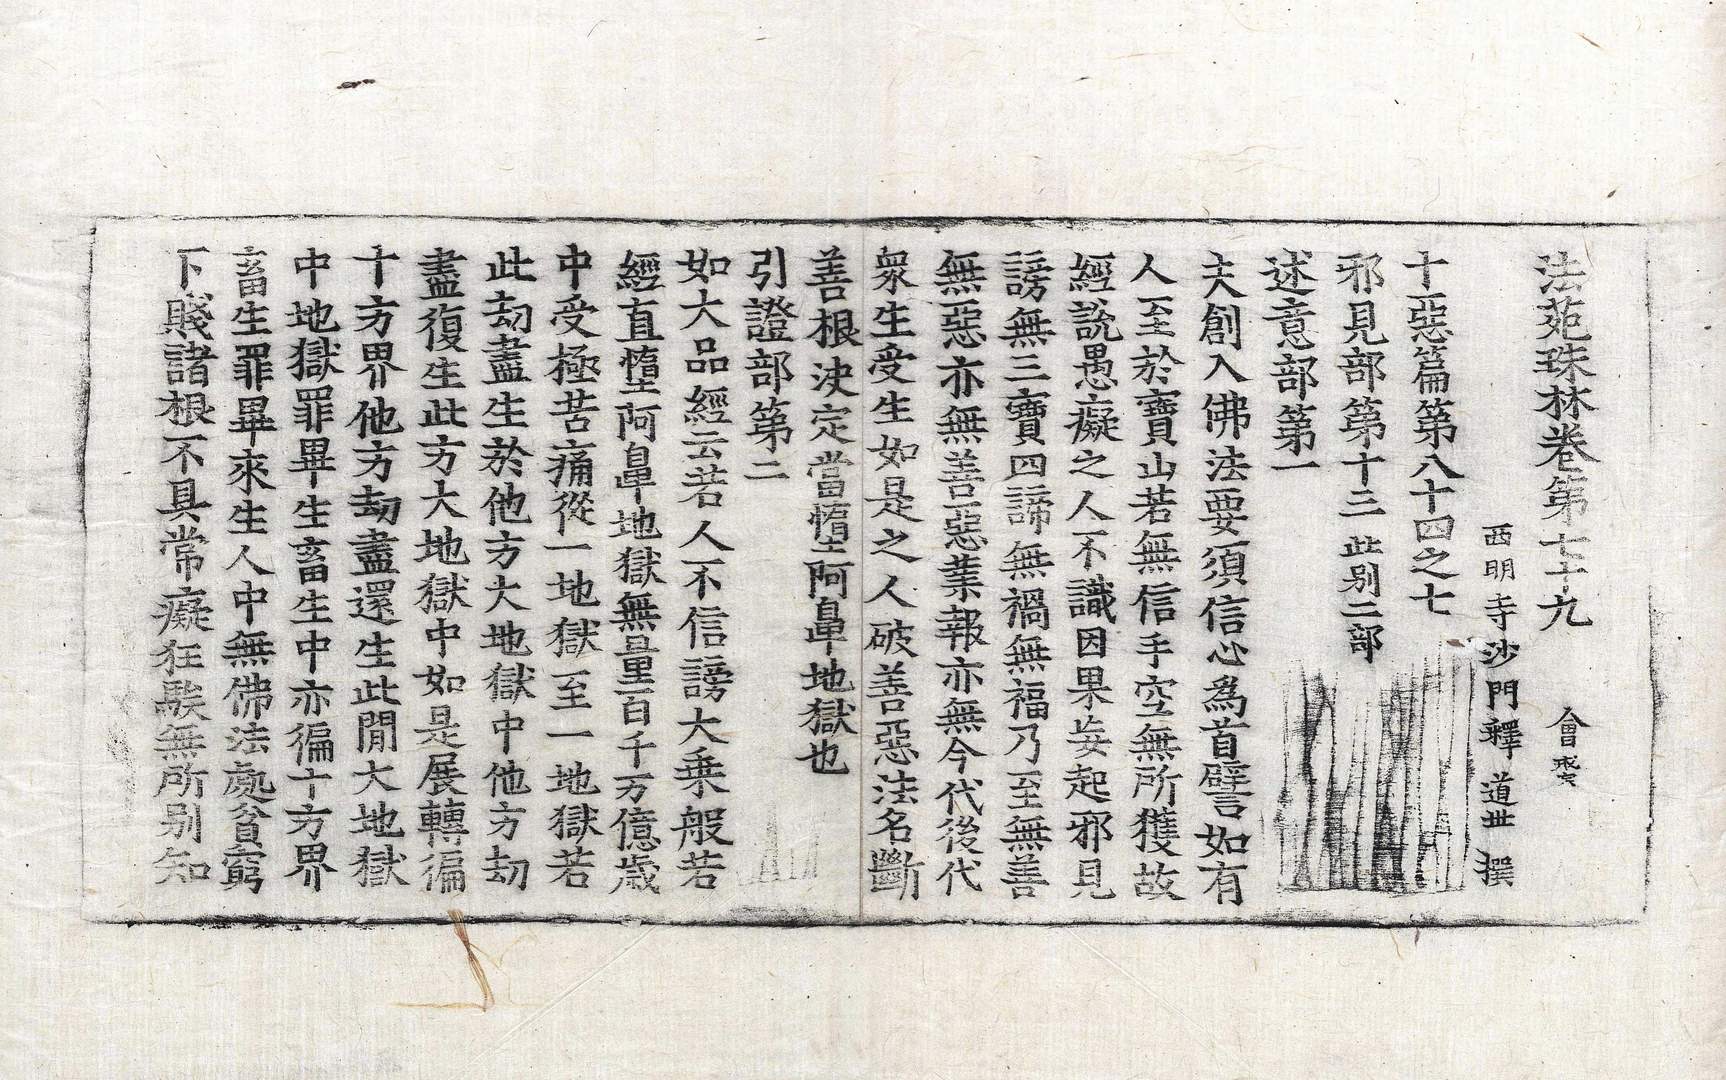 法苑珠林卷第七十九　會
西明寺沙門釋道世撰
十惡篇第八十四之七
邪見部第十三此别二部
述意部第一
夫創入佛法要須信心爲首譬如有
人至於寶山若無信手空無所獲故
經說愚癡之人不識因果妄起邪見
謗無三寶四諦無禍無福乃至無善
無惡亦無善惡業報亦無今代後代
衆生受生如是之人破善惡法名斷
善根決定當墮阿鼻地獄也
引證部第二
如大品經云若人不信謗大乘般若
經直墮阿鼻地獄無量百千万億歲
中受極苦痛從一地獄至一地獄若
此劫盡生於他方大地獄中他方劫
盡復生此方大地獄中如是展轉徧
十方界他方劫盡還生此閒大地獄
中地獄罪畢生畜生中亦徧十方界
畜生罪畢來生人中無佛法處貧窮
下賤諸根不具常癡狂騃無所别知